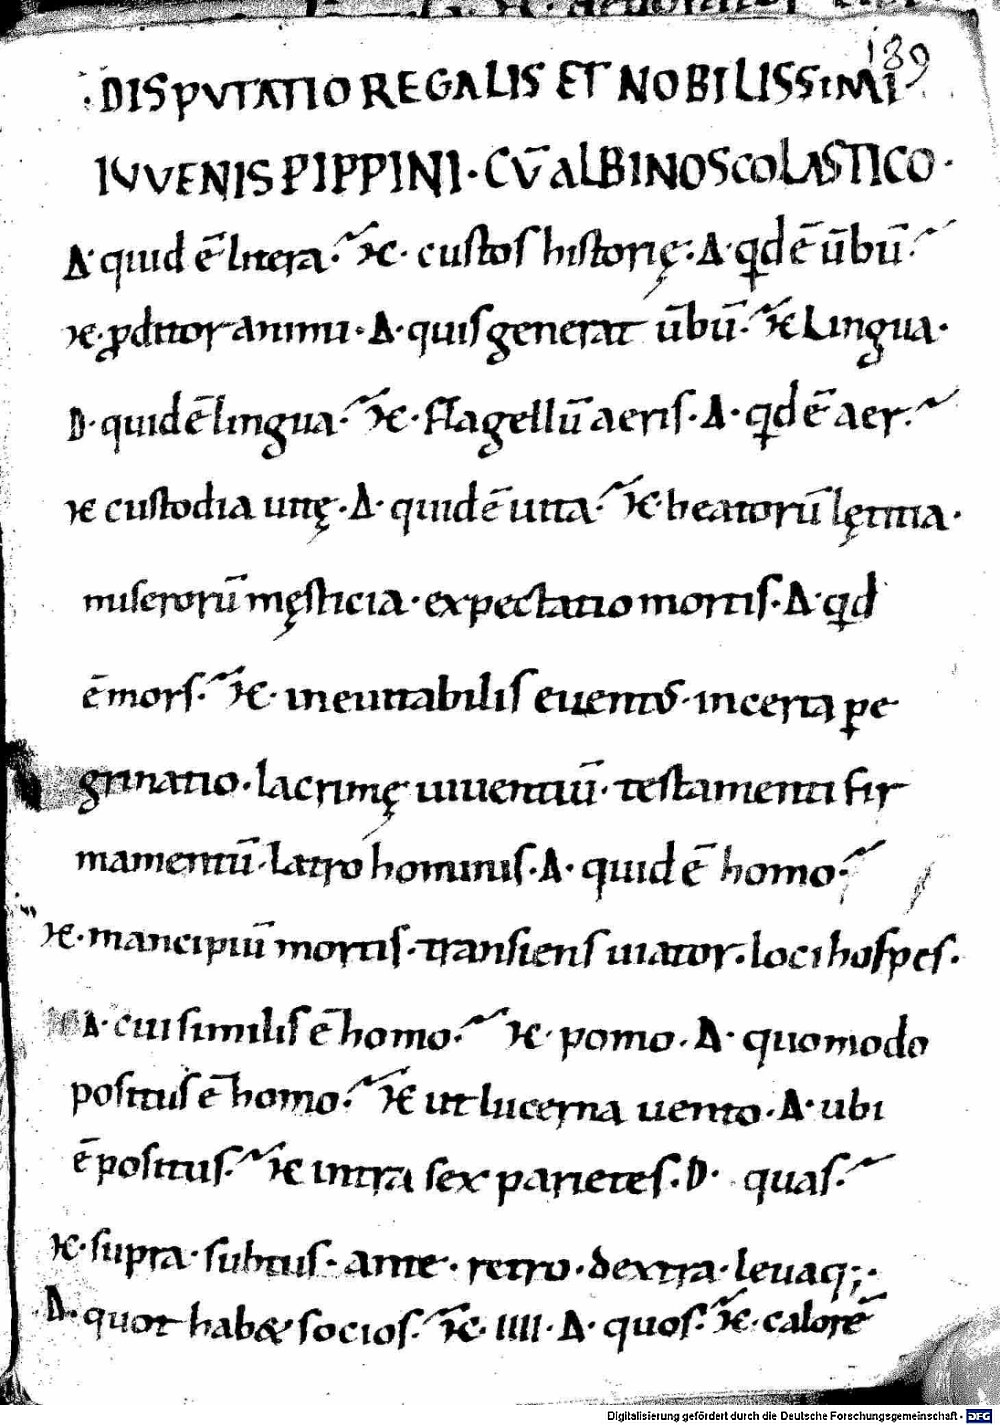 189
DISPVTATIO REGALIS ET NOBILISSIMI
IVVENIS PIPPINI · CV̄ ALBINO SCOLASTICO ·
Δ· quid ē litera · ϰ · custos historię : Δ · qđ ē ūbū ·
ϰ · ꝓditor animi · Δ · quis generat ūbū · ϰ Lingua ·
D · quid ē lingua · ϰ · Flagellū aeris · Δ · qđ ē aer ·
ϰ custodia uitę · Δ · quid ē uita · ϰ · beatorū lętitia ·
miserorū męsticia · expectatio mortis · Δ · qđ
ē mors · ϰ · ineuitabilis euentus · incerta pe
grinatio · lacrimę uiuentiū · testamenti fir
mamentū · latro hominis · Δ · quid ē homo ·
ϰ · mancipiū mortis · transiens uiator · loci hospes ·
Δ · cui similis ē homo · ϰ · pomo · Δ · quomodo
positus ē homo · ϰ ut lucerna uento · Δ · ubi
ē positus · ϰ intra sex parietes · D · quas ·
ϰ · supra · subtus · ante · retro · dextra · leuaq; ·
D · quot hab& socios · ϰ · IIII · Δ · quos · ϰ · calorē
Digitalisierung gefördert durch die Deutsche Forschungsgemeinschaft - DFG